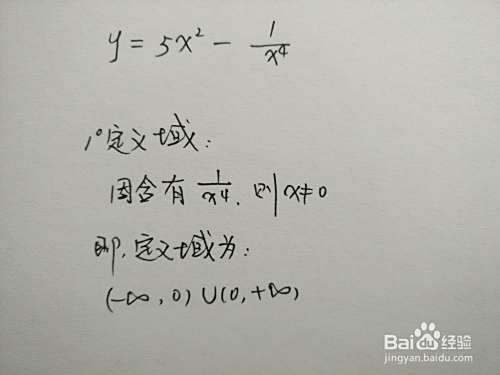 y = 5x² - 1/x⁴
1°定义域：
因含有 1/x⁴, 则 x≠0
即, 定义域为：
(-∞, 0) ∪ (0, +∞)
Baidu 经验
jingyan.baidu.com